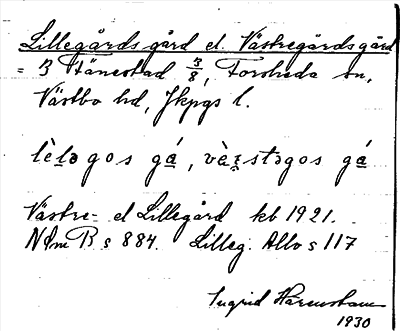 Lillegårds gård el. Västregårdsgård
= 3 Stänestad 3/8, Forsheda sn,
Västbo hd, Jkpgs l.
lèləgos gá, vèstəgos gá
Västre- el Lillegård kb 1921.
Ndm B s 884. Lilleg. Allvs s 117
Ingrid Härenstam
1930